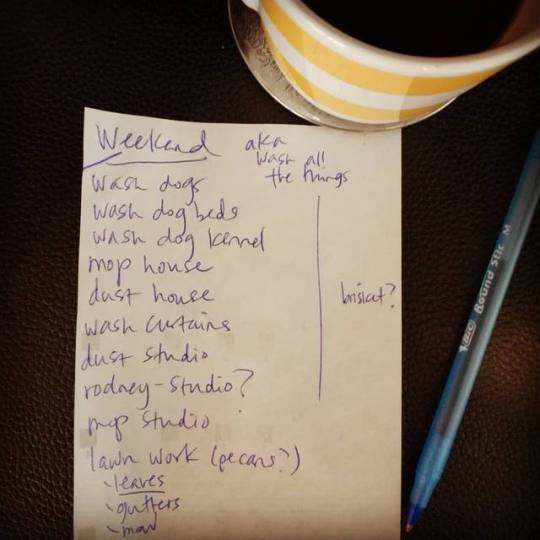 Weekend
aka
wash all
the things
wash dogs
wash dog beds
wash dog kennel
mop house
dust house
wash curtains
dust studio
rodney-studio?
mop studio
lawn work (pecans?)
- leaves
- gutters
- mow
brisket?
BIC Round Stic M